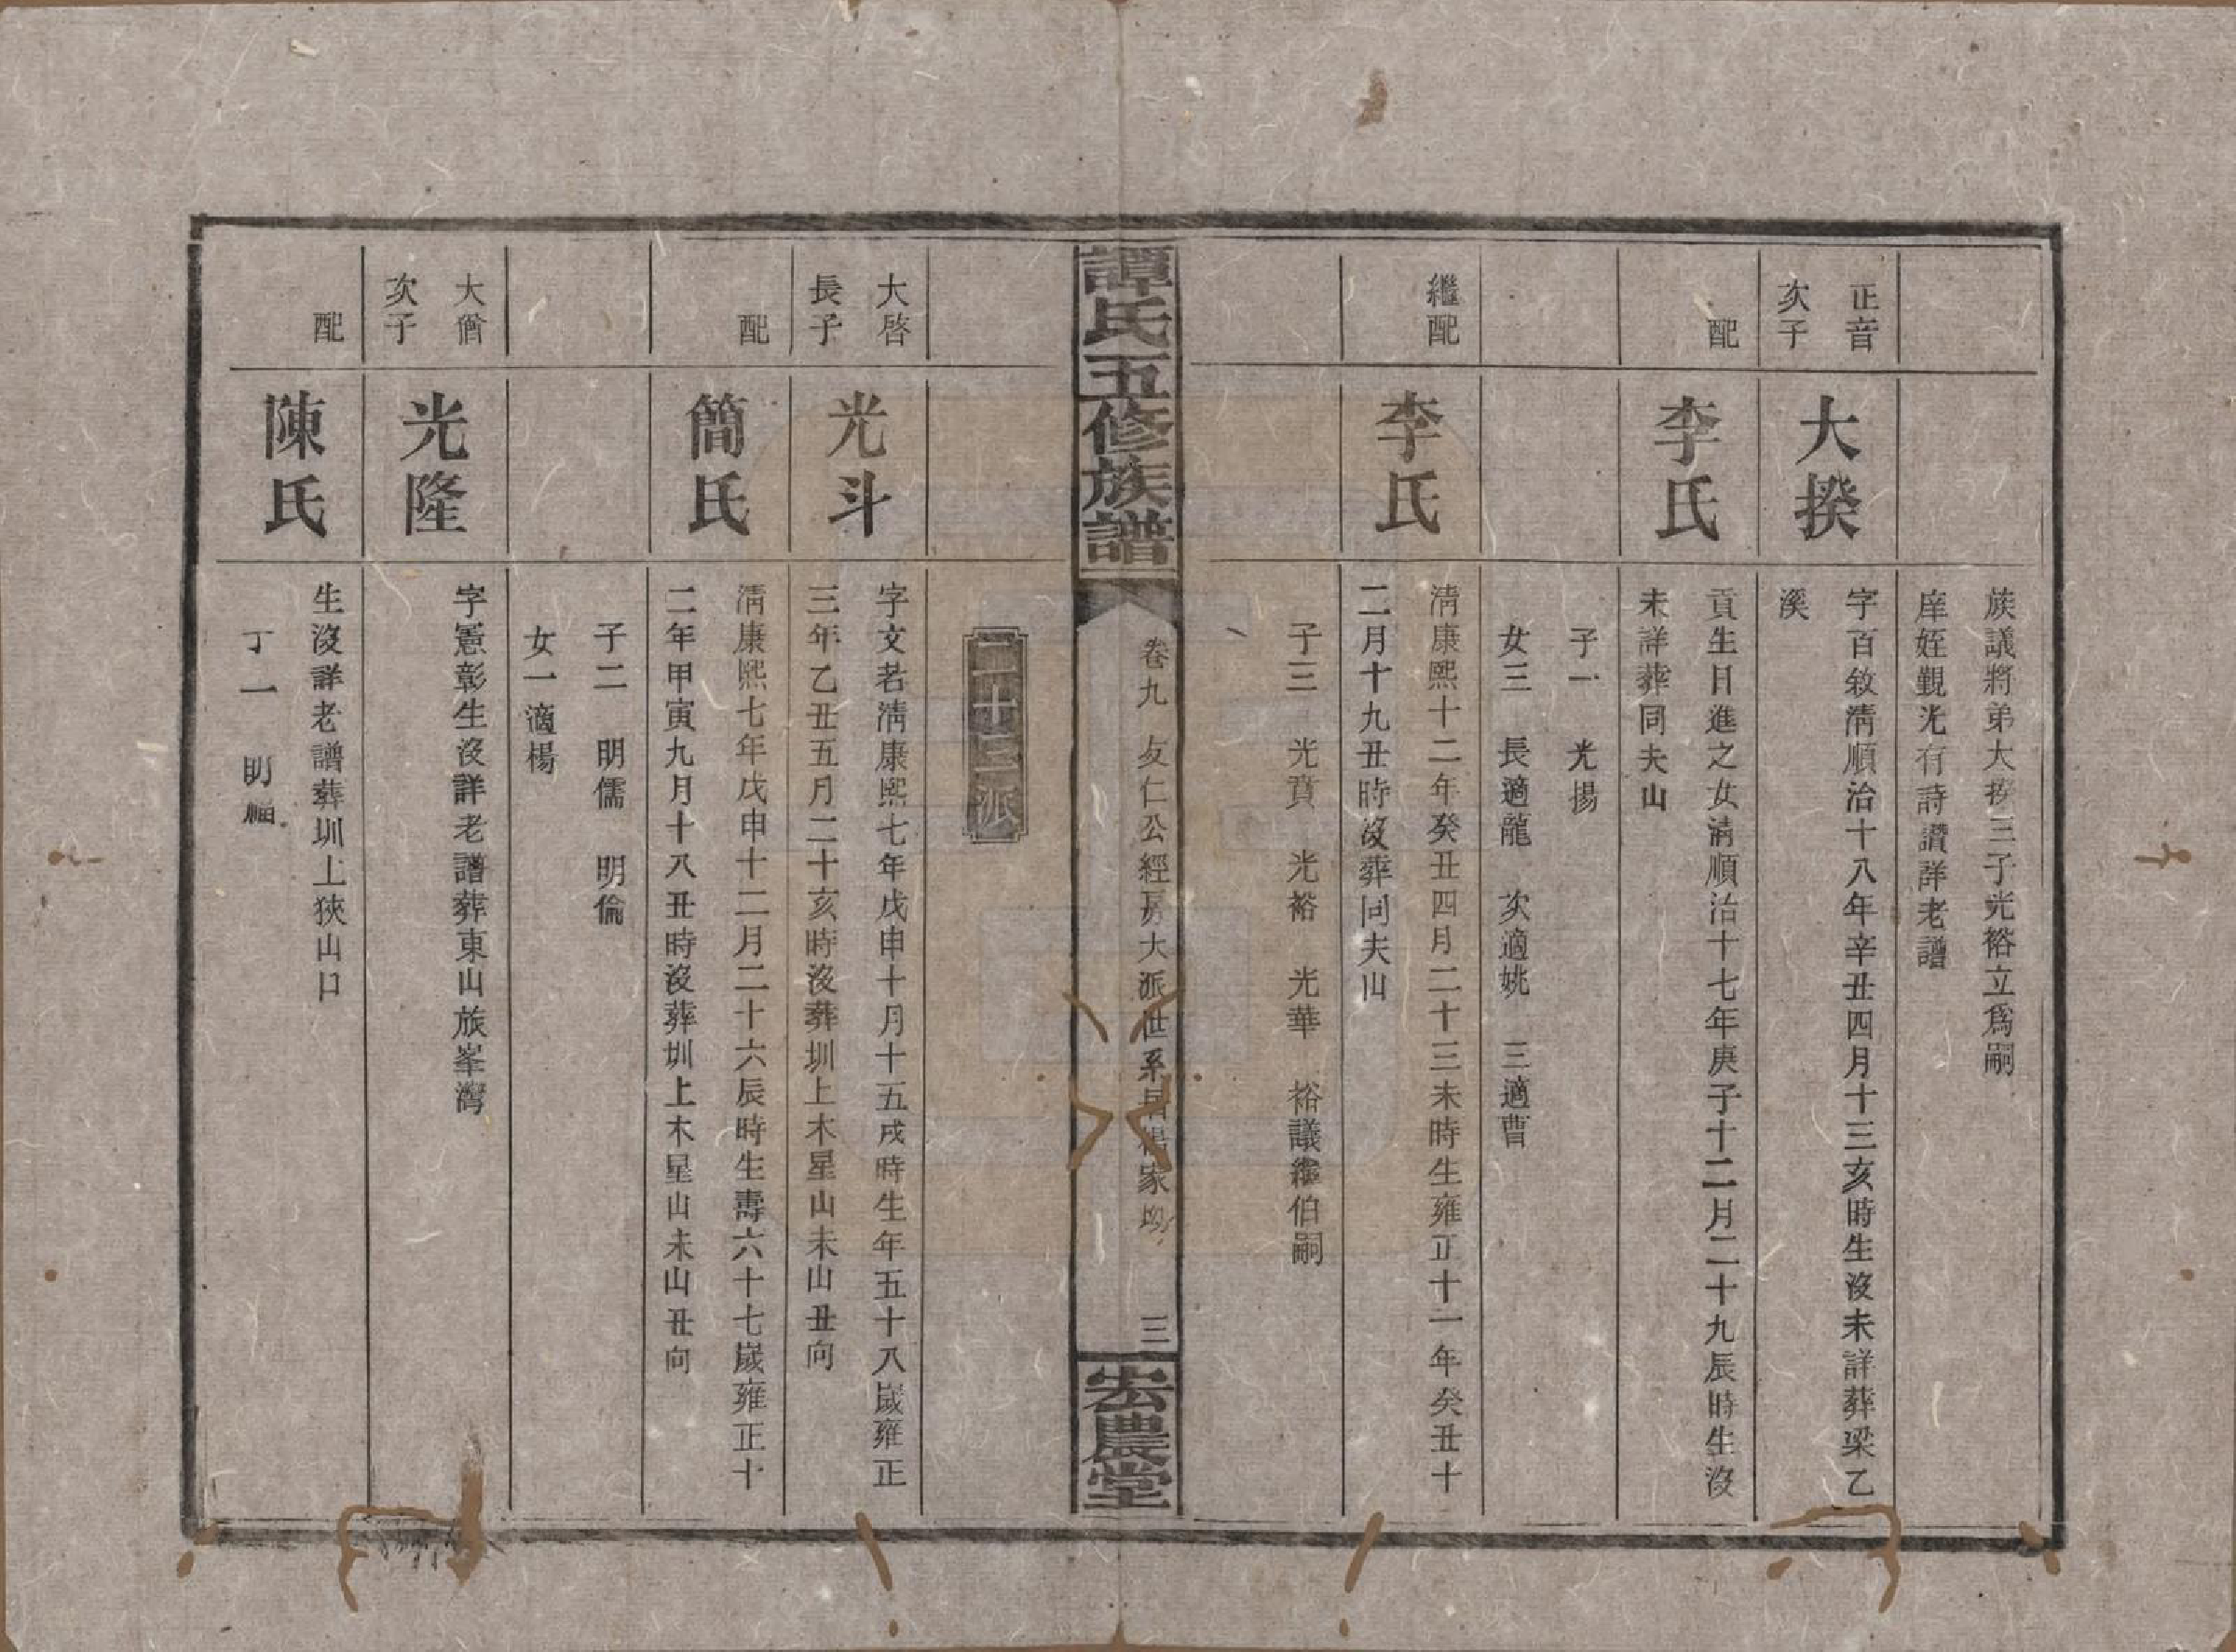 族議將弟大揆三子光裕立爲嗣
庠姪觐光有詩讃詳老譜
正音
次子
大揆
字百敘淸順治十八年辛丑四月十三亥時生沒未詳葬梁乙
溪
配
李氏
貢生日進之女淸順治十七年庚子十二月二十九辰時生沒
未詳葬同夫山
子一 光揚
女三 長適龍 次適姚 三適曹
繼配
李氏
淸康熙十二年癸丑四月二十三未時生雍正十一年癸丑十
二月十九丑時沒葬同夫山
子三 光賁 光裕 光華 裕議繼伯嗣
譚氏五修族譜
卷九 友仁公經房大派世系 家
三
宏農堂
二十二派
大啓
長子
光斗
字文若淸康熙七年戊申十月十五戌時生年五十八歲雍正
三年乙丑五月二十亥時沒葬圳上木星山未山丑向
配
簡氏
淸康熙七年戊申十二月二十六辰時生壽六十七歲雍正十
二年甲寅九月十八丑時沒葬圳上木星山未山丑向
子二 明儒 明倫
女一適楊
大僧
次子
光隆
字憲彰生沒詳老譜葬東山族峯灣
配
陳氏
生沒詳老譜葬圳上狹山口
丁一 明福